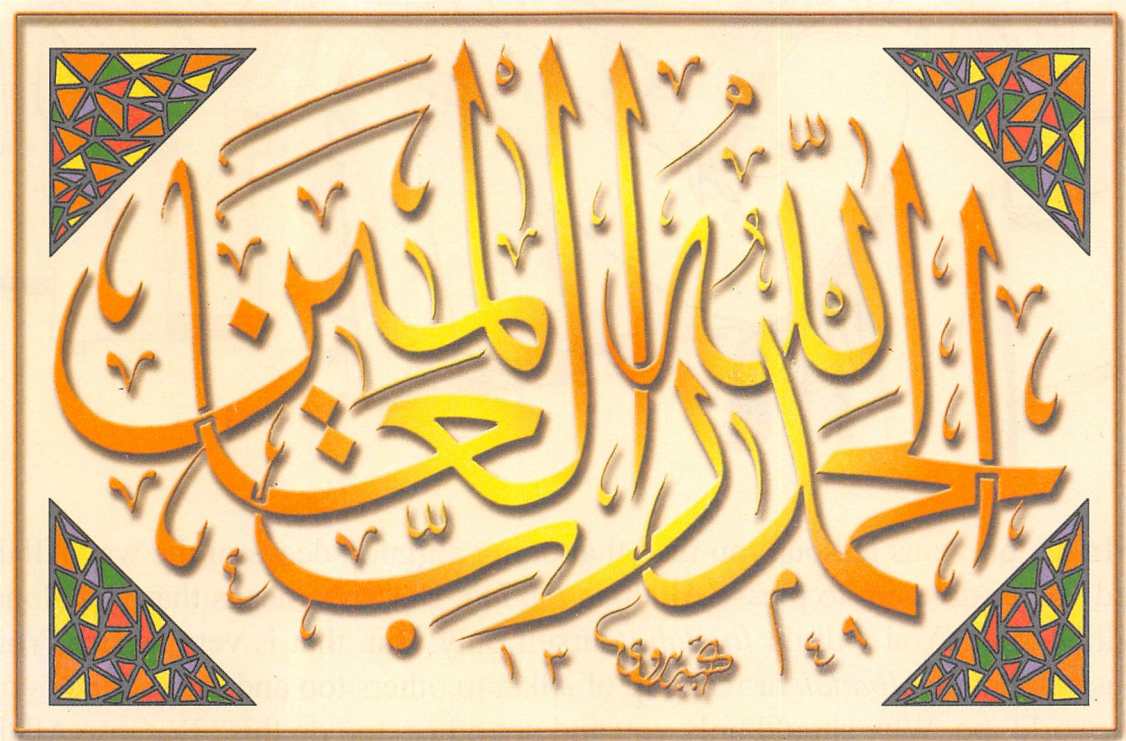 الحمد لله رب العالمين
١٣ ٤٩